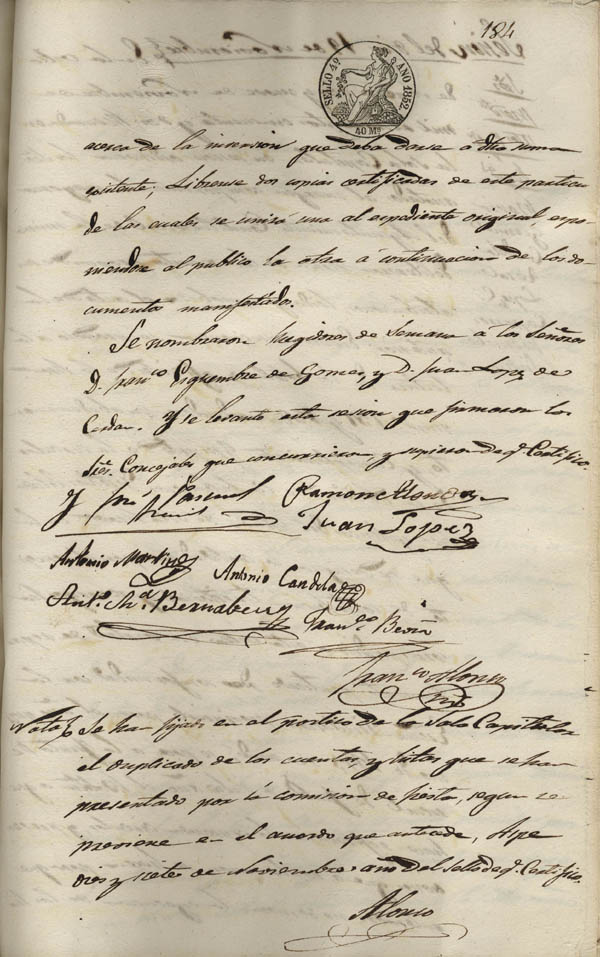 184
SELLO 4º AÑO 1852.
40 Ms
acerca de la inversion que deba darse a dha suma
existente, Librense dos copias certificadas de este particu
de las cuales se unirá una al espediente original, espo
niendose al publico la otra á continuacion de los do
cumentos manifestados.
Se nombraron Regidores de Semana a los Señores
D. Franco Esquembre de Gomez, y D. Juan Lopez de
Cerdan. Y se levantó esta sesion que firmaron los
Sres. Concejales que concurrieron y supieron de q. Certifico.
Pascual Ramon
Juan Lopez
Antonio Martinez Antonio Candela
Anto. Ma. Bernabeu Franco
Franco Alonso
Nota Se han fijado en el portico de la Sala Capitular
el duplicado de las cuentas, y listas que se han
presentado por la comision de fiesta, segun se
previene en el acuerdo que antecede, Aspe
diez y siete de Noviembre año del sello de q. Certifico.
Alonso